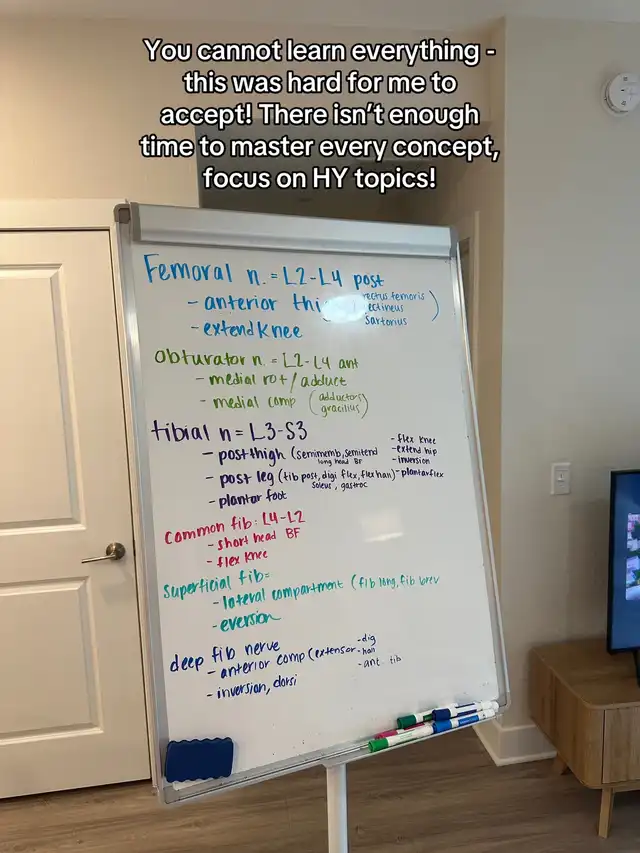 You cannot learn everything -
this was hard for me to
accept! There isn't enough
time to master every concept,
focus on HY topics!
Femoral n. = L2-L4 post
- anterior thi
rectus femoris
ectineus
Sartorius
- extend knee
obturator n. = L2-L4 ant
- medial rot/adduct
- medial comp (adductors
gracilius)
tibial n = L3-S3
- post thigh (semimemb, semitend
long head BF
- flex knee
- extend hip
- inversion
- post leg (tib post, digi flex, flex han) - plantarflex
soleus, gastroc
- plantar foot
Common fib: L4-L2
- short head BF
- flex knee
Superficial fib=
- lateral compartment (fib long, fib brev
- eversion
deep fib nerve
- anterior comp (extensor - dig
- han
- ant tib
- inversion, dorsi